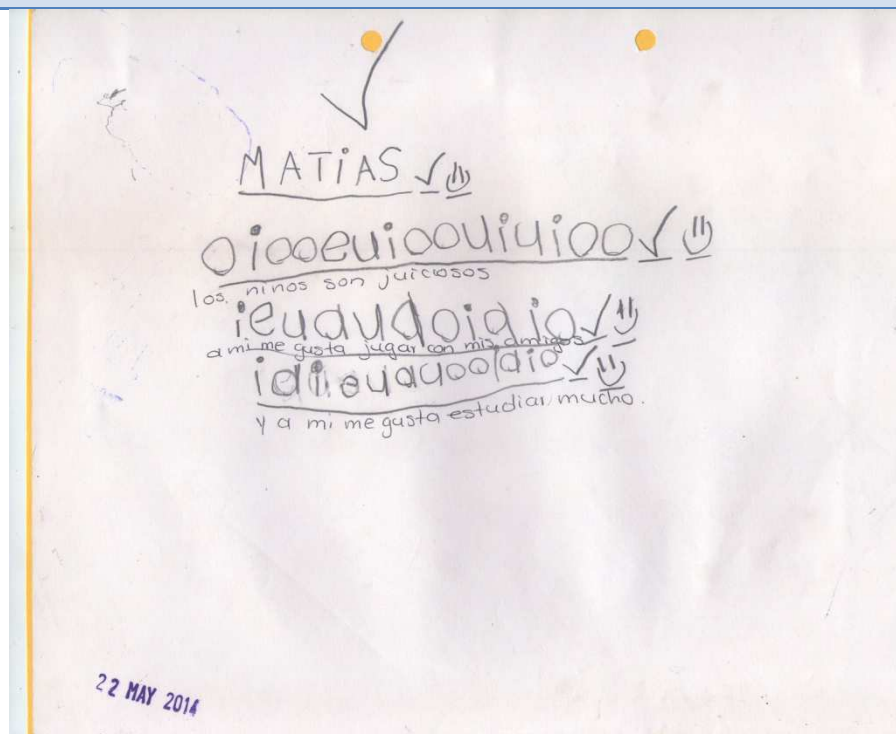 MATiAS
oiooeuioouiuioo
los ninos son juiciosos
ieuauaoiaio
a mi me gusta jugar con mis amigos
y a mi me gusta estudiar mucho.
22 MAY 2014